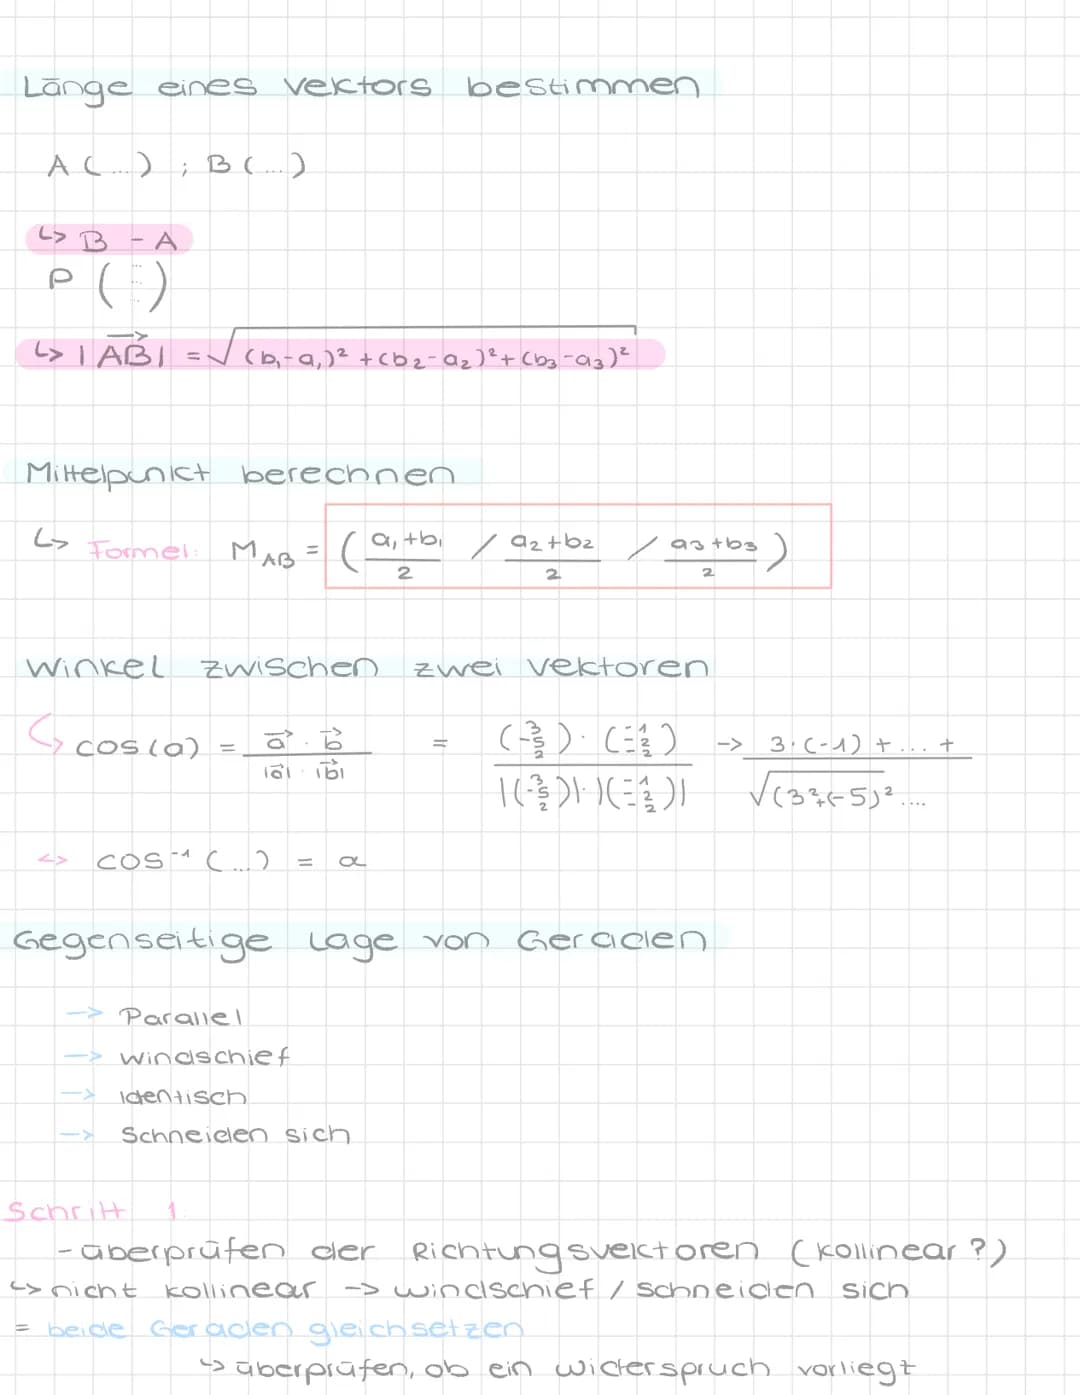 Länge eines Vektors bestimmen
A (...) ; B (...)
↳ B - A
P (⋮)
↳ |AB⃗| = √(b₁-a₁)² + (b₂-a₂)² + (b₃-a₃)²
Mittelpunkt berechnen
↳ Formel: M_AB = (a₁+b₁/2 / a₂+b₂/2 / a₃+b₃/2)
Winkel zwischen zwei Vektoren
↳ cos(a) = a⃗ · b⃗ / |a⃗| · |b⃗| = (3 -5 2) · (-1 -2 -2) / |(3 -5 2)| · |(-1 -2 -2)| -> 3·(-1) + ... + / √(3²+(-5)² ....
<> cos⁻¹ (...) = α
Gegenseitige Lage von Geraden
-> Parallel
-> windschief
-> Identisch
-> Schneiden sich
Schritt 1:
- überprüfen der Richtungsvektoren (kollinear?)
↳ nicht kollinear -> windschief / schneiden sich
= beide Geraden gleichsetzen
↳ überprüfen, ob ein Widerspruch vorliegt